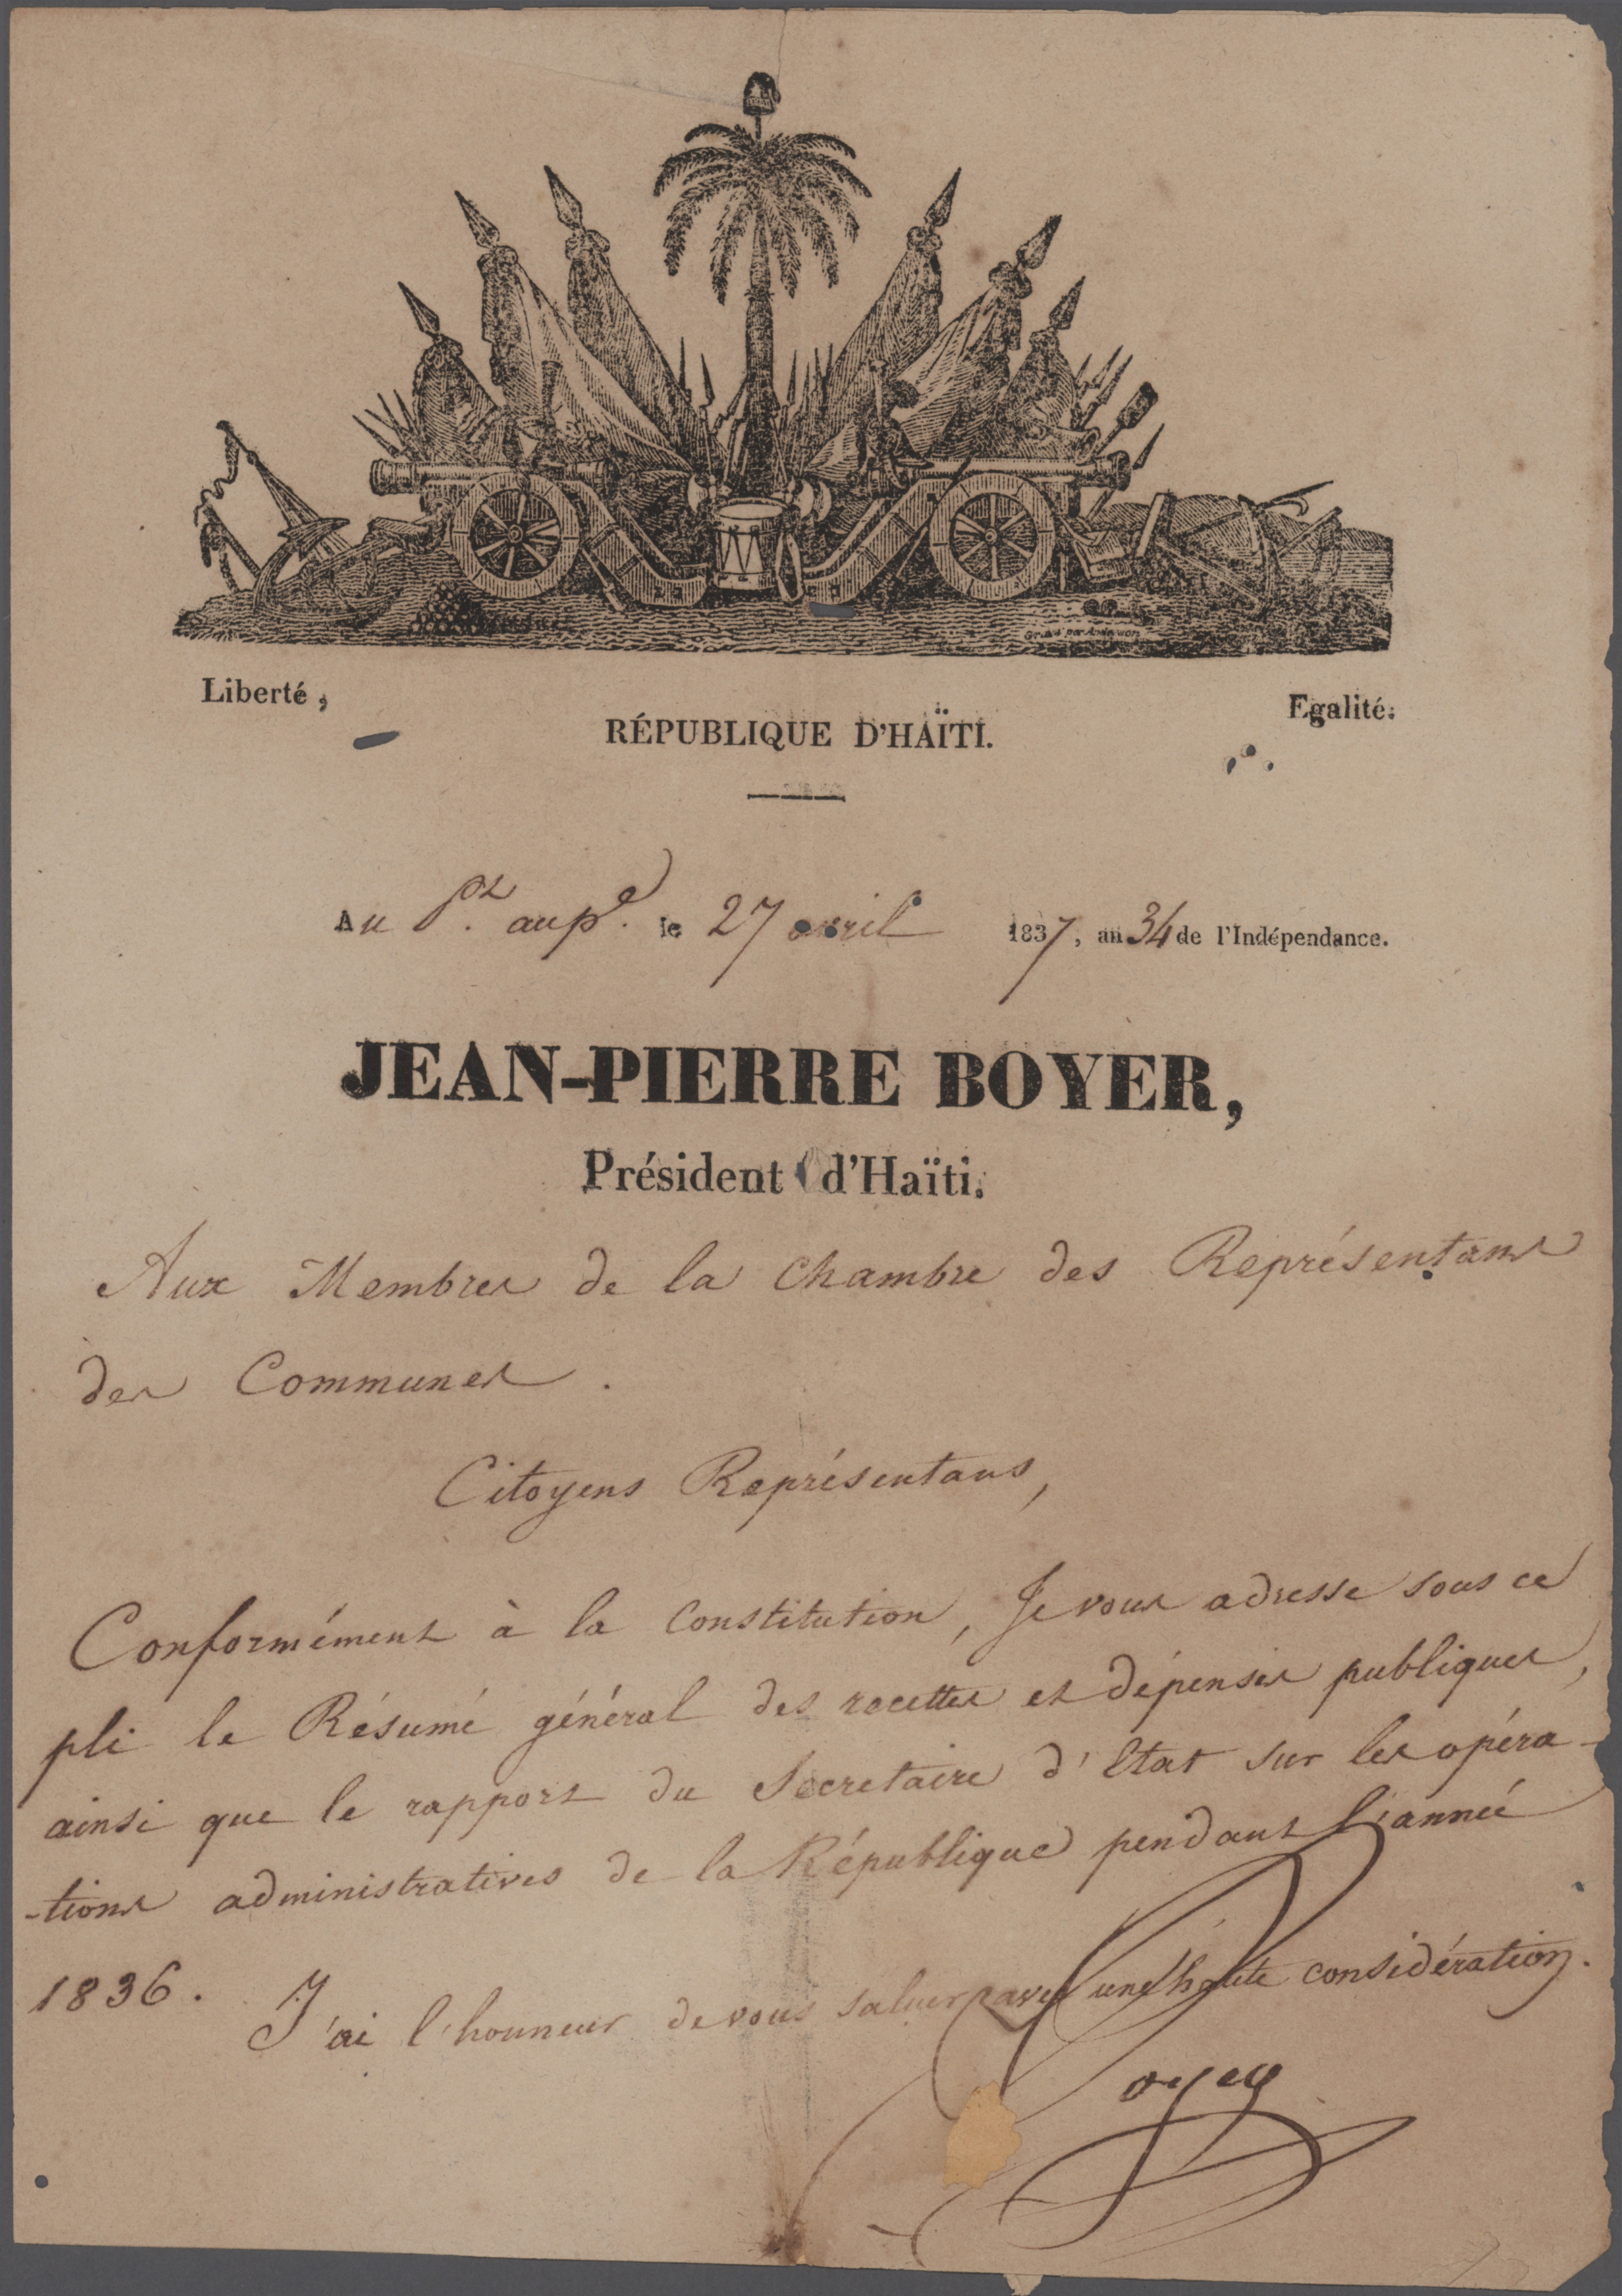 Gravé par Anderson
Liberté, Egalité.
RÉPUBLIQUE D'HAÏTI.
Au Pt. aupce. le 27 avril 1837, an 34 de l'Indépendance.
JEAN-PIERRE BOYER,
Président d'Haïti.
Aux Membres de la Chambre des Représentans
des Communes.
Citoyens Représentans,
Conformément à la Constitution, Je vous adresse sous ce
pli le Résumé général des recettes et dépenses publiques,
ainsi que le rapport du Secretaire d'Etat sur les opéra-
-tions administratives de la République pendant l'année
1836.
J'ai l'honneur de vous saluer avec une haute considération.
Boyer